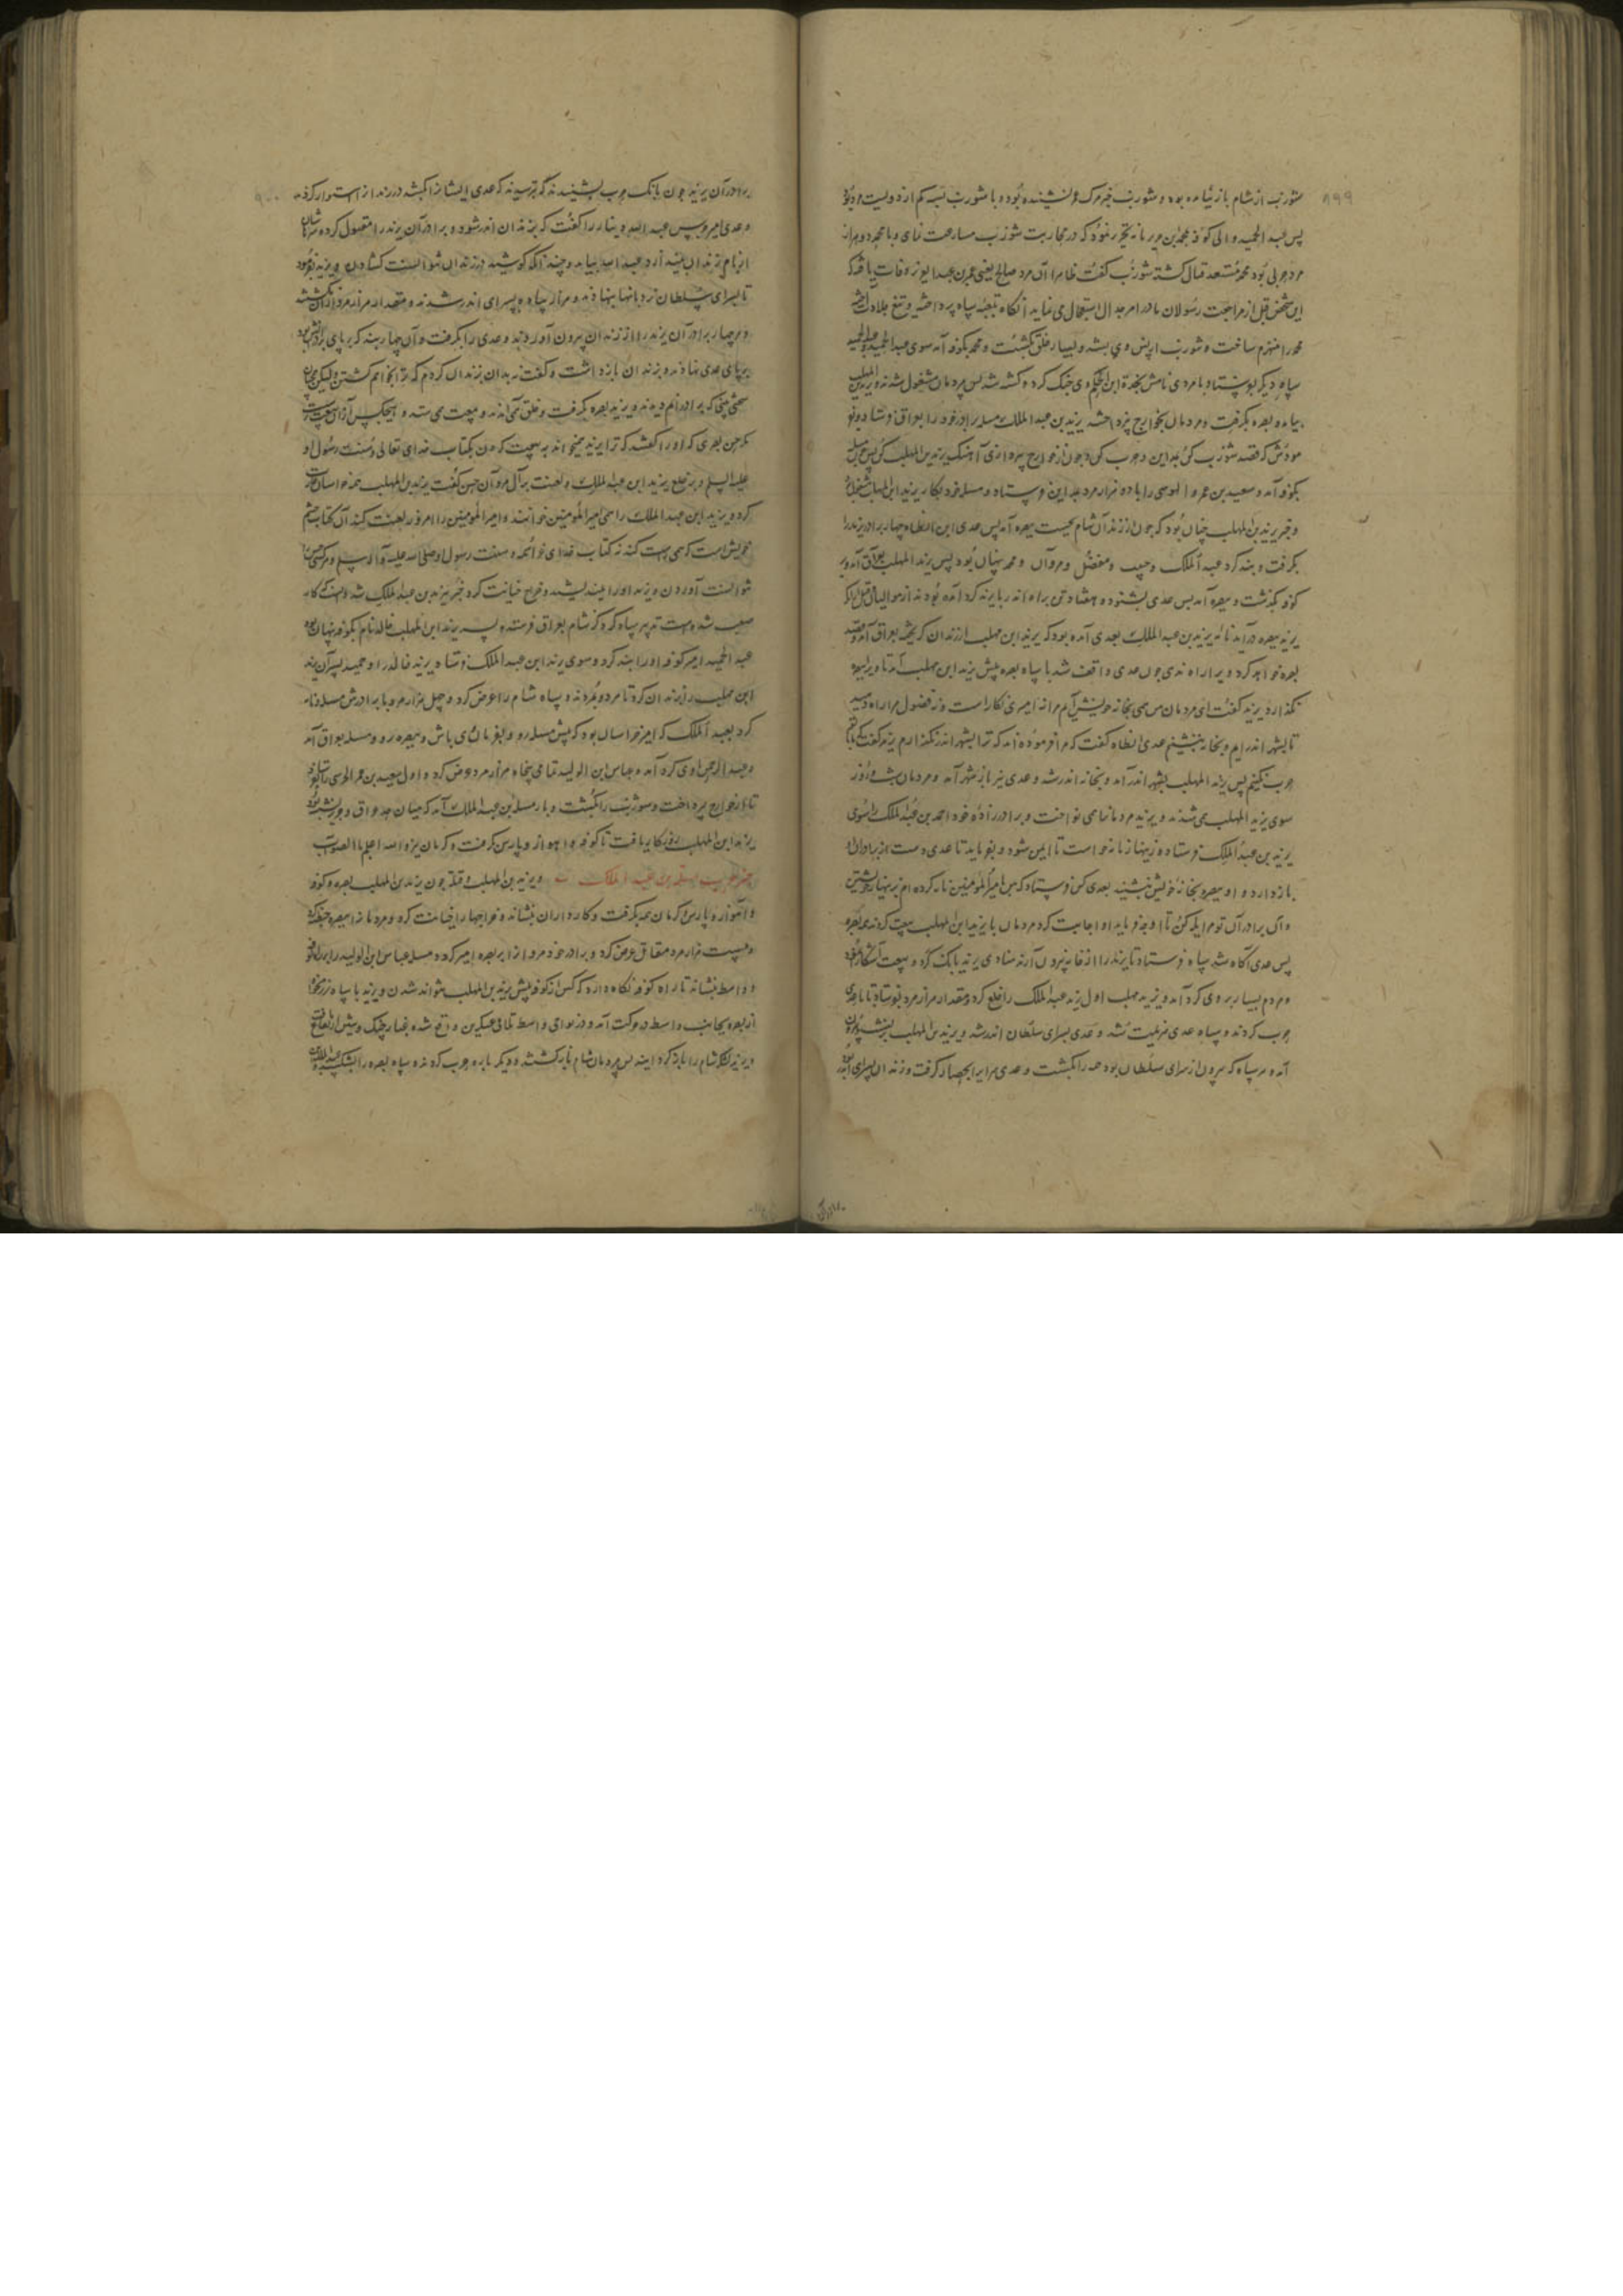 ۸۹۹
شوذب از شام باز نیامده بود و شوذب خبر مرگ عمر نشنیده بود و با شوذب نبد کم از دویست مرد بود
پس عبد الحمید والی کوفه بمحمد بن جریر نامه تحریر نمود که در محاربت شوذب مسارعت نمای و با محمد دو هزار
مرد حربی بود محمد مستعد قتال گشته شوذب گفت ظاهرا آن مرد صالح یعنی عمر بن عبد العزیز وفات یافته که
این شخص قبل از مراجعت رسولان ما در امر جدال استعجال می نماید انگاه بتعبیه سپاه پرداخته و تیغ جلادت
محمد را منهزم ساخت و شوذب از پس وی بشد و بسیار خلق بکشت و محمد بکوفه آمد سوی عبد الحمید
سپاه دیگر بفرستاد با مردی نامش نجدة ابن الحکم وی جنگ کرد و کشته شد پس مردمان مشغول شدند و یزید بن المهلب
بیامد و بصره بگرفت و مردمان بخوارج نپرداختند یزید بن عبد الملک مسلمه برادر خود را بعراق فرستاد و فر
مودش که قصد شوذب کن بمداین و حرب کن و چون از خوارج بپردازی آهنگ یزید بن المهلب کن پس
بکوفه آمد و سعید بن عمرو الحرشی را با ده هزار مرد بمداین فرستاد و مسلمه خود بکار یزید ابن المهلب
و خبر یزید بن المهلب چنان بود که چون از زندان شام بجست ببصره آمد پس عدی ابن ارطاه چهار برادر یزید را
بگرفت و بند کرد عبد الملک و حبیب و مفضل و مروان و محمد پنهان بود پس یزید المهلب بعراق آمد و بر
کوفه بگذشت و ببصره آمد پس عدی بشنود و هفتاد تن براه اندر با یزید گرد آمده بودند از موالیان قبل از آنکه
یزید ببصره درآید نامه یزید بن عبد الملک بعدی آمده بود که یزید ابن مهلب از زندان گریخته بعراق آمد و قصد
بصره خواهد کرد ویرا راه ندی چون عدی واقف شد با سپاه بصره پیش یزید ابن مهلب آمد تا ویرا ببصره
نگذارد یزید گفت ای مردمان من همی بخانه خویش آیم مرا نه امیری بکار است و نه فضول مرا راه دهید
تا بشهر اندر آیم و بخانه بنشینم عدی ارطاه گفت که مرا فرموده اند که ترا بشهر اندر نگذارم یزید گفت که
حرب نکنیم پس یزید المهلب بشهر اندر آمد و بخانه اندر شد و عدی نیز باز شهر آمد و مردمان شب و روز
سوی یزید المهلب می شدند و یزید مردمانرا همی نواخت و برادر زاده خود احمد بن عبد الملک را سوی
یزید بن عبد الملک فرستاد و زینهار نامه خواست تا ایمن شود و بفرماید تا عدی دست از برادران او
باز دارد و او ببصره بخانه خویش بنشیند بعدی کس فرستاد که من امیر المومنین نامه کرده ام بزینهار خویشتن
و آن برادران تو مرا یله کن تا او چه فرماید او اجابت کرد و مردمان با یزید ابن المهلب بیعت کردند به بصره
پس عدی آگاه شد سپاه فرستاد تا یزید را از خانه بیرون آرند منادی یزید بانگ کرد و بیعت آشکارا
و مردم بسیار بر وی گرد آمد و یزید مهلب اول یزید عبد الملک را خلع کرد و مقدار هزار مرد بفرستاد تا با عدی
حرب کردند و سپاه عدی هزیمت شد و عدی بسرای سلطان اندر شد و یزید بن المهلب
آمد و هر سپاه که بیرون از سرای سلطان بود همه را بکشت و عدی مر اورا بحصار گرفت و زندان بسرای
۹۰۰
برادران یزید چون بانگ حرب بشنیدند بترسیدند که عدی ایشانرا بکشد در زندان استوار کردند
و عدی امیر حرس عبد الله دینار را گفت که بزندان اندر شو و برادران یزید را مقتول کرده سرهاشان
از بام زندان بینداز و عبد الله بیامد و چندانکه کوشید در زندان نتوانست گشادن و یزید
تا بسرای سلطان نردبانها بنهادند و هزار سپاه بسرای اندر شدند و مقدار هزار مرد
و هر چهار برادران یزید را از زندان بیرون آوردند و عدی را بگرفت و آن چهار بند که بر پای برادرانش بود
بر پای عدی نهاد و بزندان باز داشت و گفت بدان بزندان کردم که ترا نخواهم کشتن ولیکن
سختی بینی که برادرانم دیدند و یزید بصره بگرفت و خلق می آمدند و بیعت می ستد و هیچکس
مگر حسن بصری که او را گفتند که ترا یزید میخواند به بیعت کردن بکتاب خدای تعالی و سنت رسول او
علیه السلم و بر خلع یزید ابن عبد الملک و لعنت بر آل مروان حسن گفت یزید بن المهلب
کرد و یزید ابن عبد الملک را همی امیر المومنین خوانند و امیر المومنین را امروز لعنت کند آن
خویش است که همی بیعت کند نه کتاب خدای خوانده و سنت رسول او صلی الله علیه و آله و سلم
نتوانست آوردن و یزید او را و خبر یزید بن عبد الملک شد و گفت که کار
صعب شده است تدبیر سپاه کرد که از شام بعراق فرستد و پسر یزید ابن المهلب خالد نام بکوفه پنهان بود
عبد الحمید امیر کوفه او را بند کرد و سوی یزید ابن عبد الملک فرستاد و یزید خالد را و حمید پسر آن
ابن مهلب را بزندان کرد تا مردند و سپاه شام را عرض کرد و چهل هزار مرد با برادرش مسلمه و نامه
کرد بعبد الملک که امیر خراسان بود که پیش مسلمه رو و بفرمان وی باش و ببصره رو و مسلمه بعراق آمد
و عبد الرحمن اوی گرد آمد و عباس ابن الولید تمامی پنجاه هزار مرد عرض کرد و اول سعید بن عمر الحرشی را
تا از خوارج بپرداخت و شوذب را بکشت و باز مسلمه بن عبد الملک آمد که میان حد عراق
یزید ابن المهلب روزگار یافت تا کوفه و اهواز و پارس گرفت و کرمان نیز والله اعلم بالصواب
خبر حرب مسلمه بن عبد الملک و یزید بن المهلب و قتله چون یزید بن المهلب بصره و کوفه
و اهواز و پارس و کرمان همه بگرفت و کارداران بنشاند و خراجها را خیانت کرد و مردمان را ببصره
و بیست هزار مرد مقاتل عرض کرد و برادر خود مروان را بر بصره امیر کرد و مسلمه عباس ابن الولید را
و واسط بنشاند تا راه کوفه نگاه دارد که کس از کوفه پیش یزید بن المهلب نتواند شدن و یزید با سپاه
از بصره بجانب واسط در حرکت آمد و در نواحی واسط تلاقی عسکرین واقع شده غبار جنگ
و یزید لشکر شام را پس مردمان شام باز گشتند و دیگر باره حرب کردند و سپاه بصره را